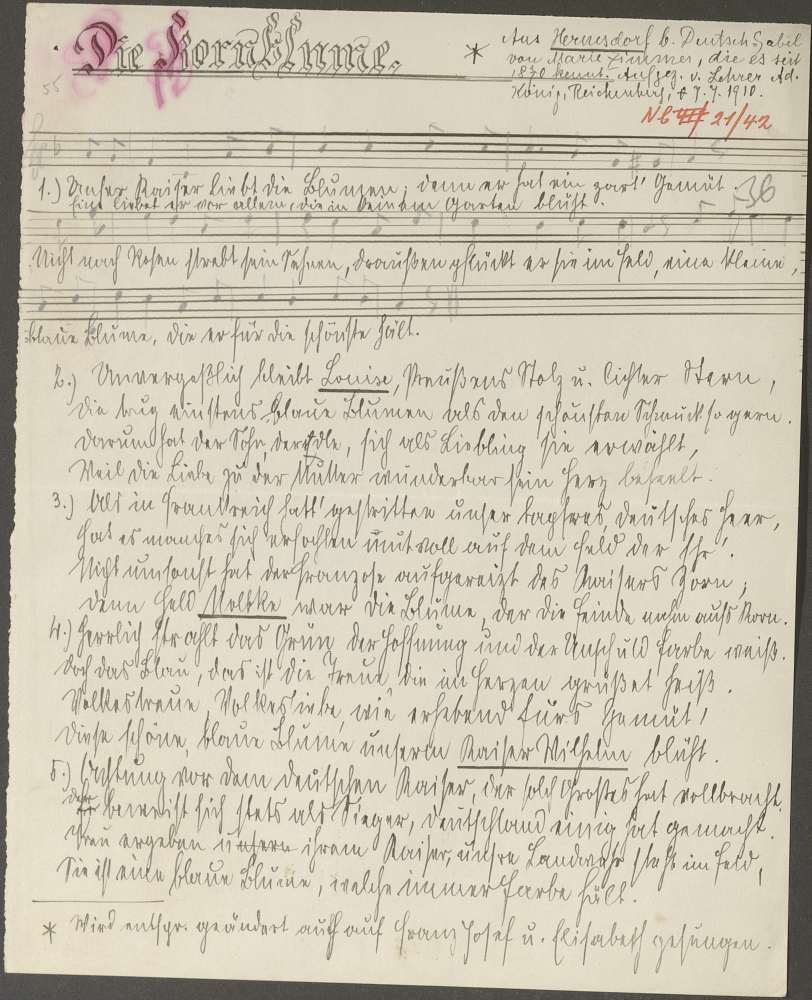 Die Kornblume.
* Aus Hermsdorf b. Deutsch Gabel
von Marie Zimmer, die es seit
1870 kennt. Aufgez. v. Lehrer Ad.
König, Reichenberg, 7.7.1910.
55
NB 21/42
36
1.) Unser Kaiser liebt die Blumen; denn er hat ein zart' Gemüt.
Eine liebet er vor allem, die in keinem Garten blüht.
Nicht nach Rosen strebt sein Sehnen, draußen pflückt er sie im Feld, eine kleine,
blaue Blume, die er für die schönste hält.
2.) Unvergeßlich bleibt Louise, Preußens Stolz u. lichter Stern,
die trug einstens blaue Blumen als den schönsten Schmuck so gern.
Darum hat der Sohn, der edle, sich als Liebling sie erwählt,
Weil die Liebe zu der Mutter wunderbar sein Herz beseelt.
3.) Als in Frankreich hatt' gestritten unser tapfres, deutsches Heer,
hat es manches sich erfochten mutvoll auf dem Feld der Ehr'.
Nicht umsonst hat der Franzose aufgereizt des Kaisers Zorn;
denn Held Moltke war die Blume, der die Feinde nahm aufs Korn.
4.) Herrlich strahlt das Grün der Hoffnung und der Unschuld Farbe weiß.
Doch das Blau, das ist die Treue, die im Herzen grüßet heiß.
Volkestreue, Volkesliebe, wie erhebend fürs Gemüt!
Diese schöne, blaue Blume unserm Kaiser Wilhelm blüht.
5.) Achtung vor dem deutschen Kaiser, der solch Großes hat vollbracht,
der beweist sich stets als Sieger, Deutschland einig hat gemacht.
Treu ergeben unsern ihrem Kaiser, unsre Landwehr steht im Feld,
Sie ist eine blaue Blume, welche immer Farbe hält.
* Wird entspr. geändert auch auf Franz Josef u. Elisabeth gesungen.